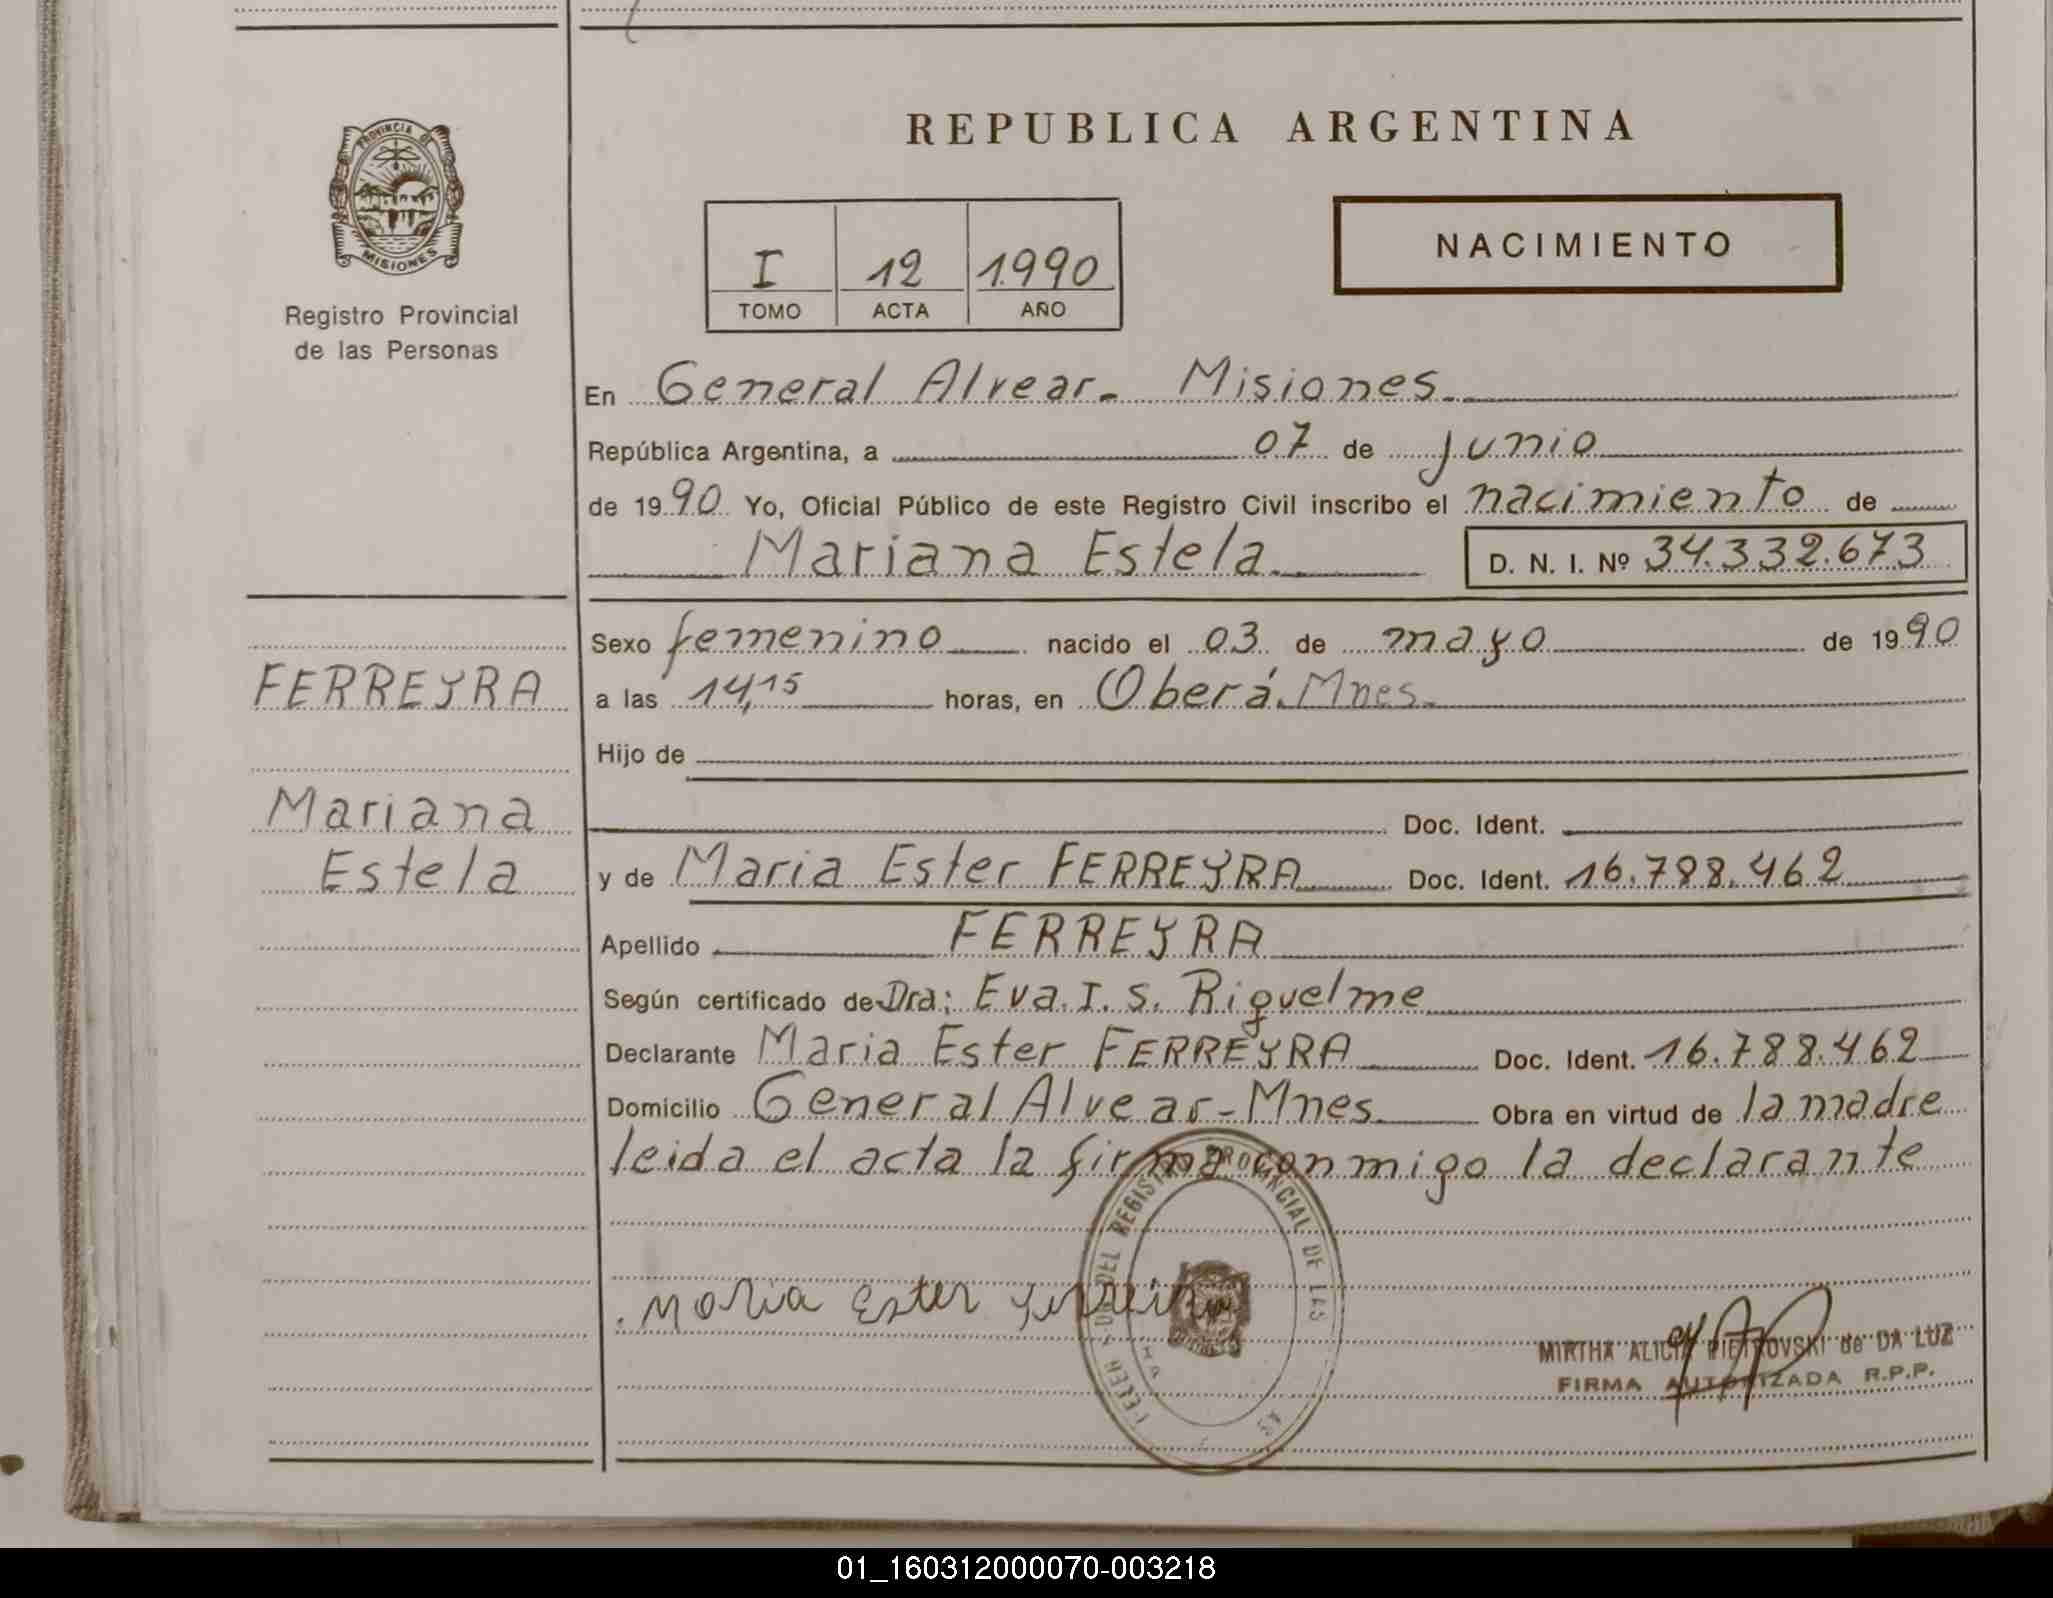 PROVINCIA DE
MISIONES
Registro Provincial
de las Personas
REPUBLICA ARGENTINA
I 12 1.990
TOMO ACTA AÑO
NACIMIENTO
En General Alvear. Misiones.
República Argentina, a 07 de junio
de 1990 Yo, Oficial Público de este Registro Civil inscribo el nacimiento de
Mariana Estela. D. N. I. Nº 34.332.673
Sexo femenino nacido el 03 de mayo de 1990
a las 14,15 horas, en Oberá. Mnes.
Hijo de
Doc. Ident.
y de Maria Ester FERREYRA Doc. Ident. 16.788.462
Apellido FERREYRA
Según certificado de Dra: Eva. I. S. Riquelme
Declarante Maria Ester FERREYRA Doc. Ident. 16.788.462
Domicilio General Alvear-Mnes. Obra en virtud de la madre
leida el acta la firma conmigo la declarante
FERREYRA
Mariana
Estela
DEL REGISTRO PROVINCIAL DE LAS
Maria Ester Ferreira
MIRTHA ALICIA PIETROVSKI de DA LUZ
FIRMA AUTORIZADA R.P.P.
01_160312000070-003218